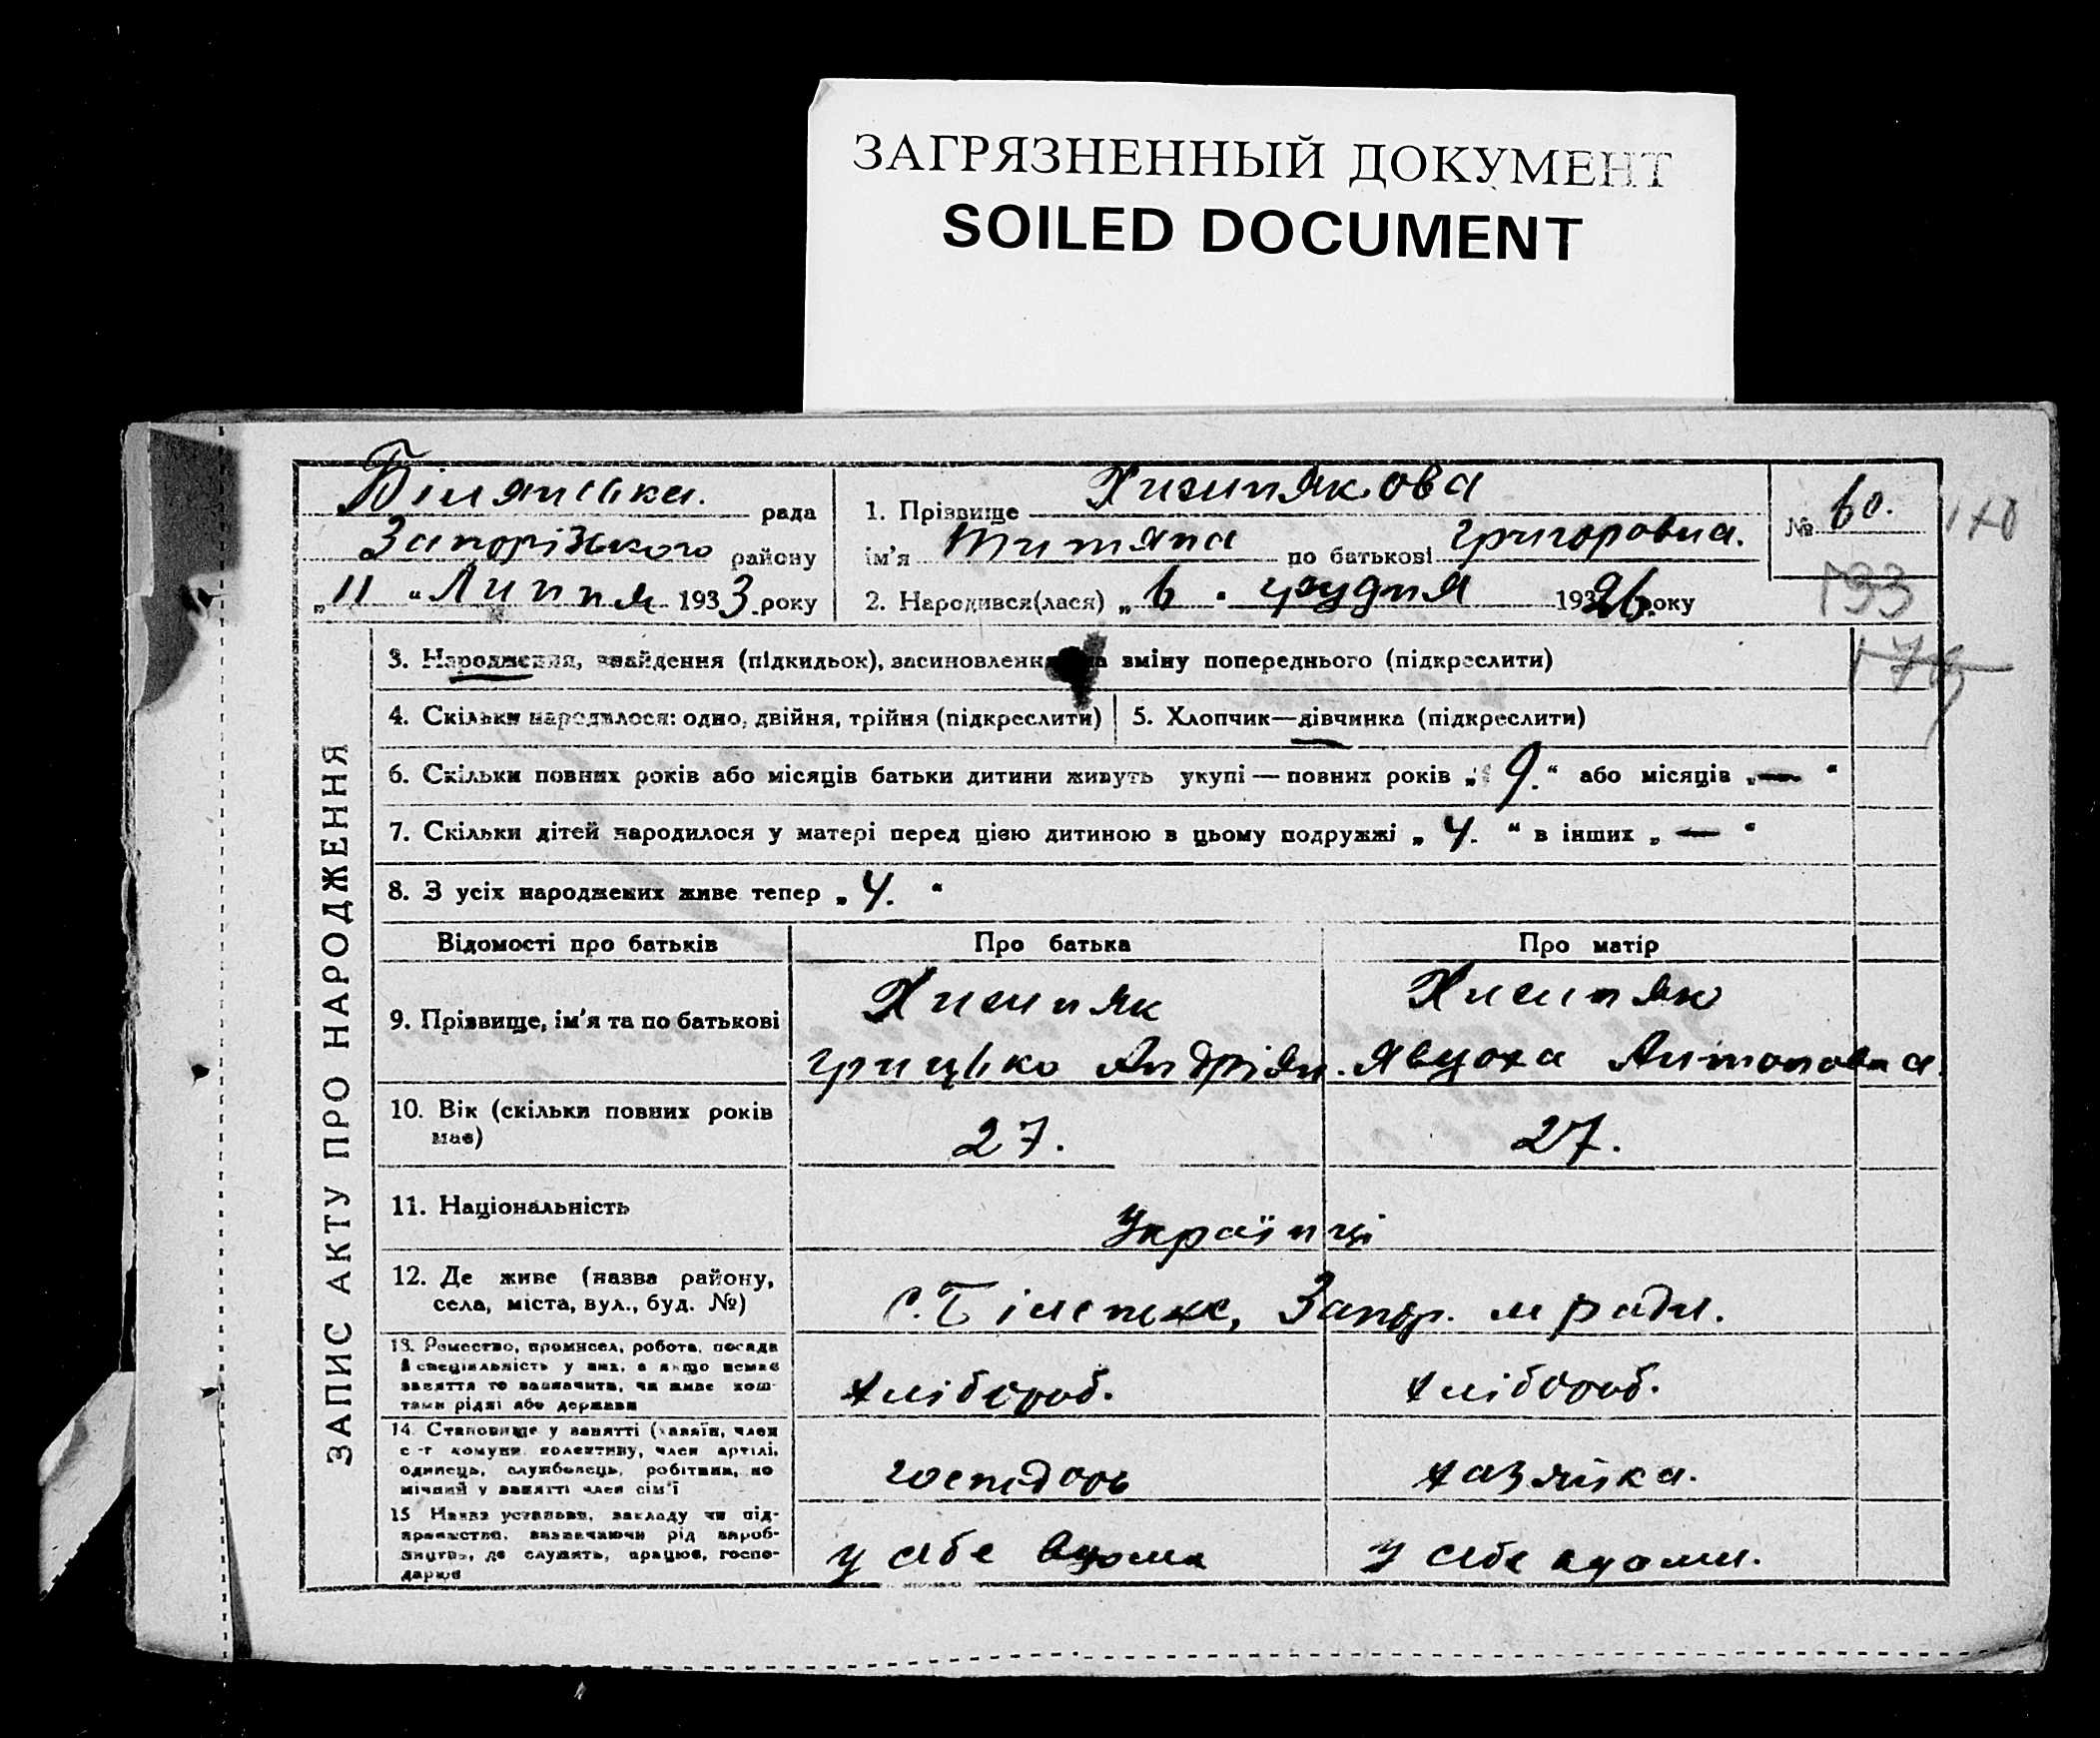 ЗАГРЯЗНЕННЫЙ ДОКУМЕНТ
SOILED DOCUMENT
рада
Запорізького району
„11“ Липня 1933. року
1. Прізвище
ім'я по батькові Григоровна.
2. Народився(лася) „6. грудня 1926. року
№ 60.
170
193
ЗАПИС АКТУ ПРО НАРОДЖЕННЯ
3. Народження, знайдення (підкидьок), засиновлення, на зміну попереднього (підкреслити)
4. Скільки народилося: одно, двійня, трійня (підкреслити)
5. Хлопчик—дівчинка (підкреслити)
6. Скільки повних років або місяців батьки дитини живуть укупі — повних років „9.“ або місяців „—“
7. Скільки дітей народилося у матері перед цією дитиною в цьому подружжі „4.“ в інших „—“
8. З усіх народжених живе тепер „4.“
Відомості про батьків
Про батька
Про матір
9. Прізвище, ім'я та по батькові
Грицько Андріян.
Явдоха Антоновна.
10. Вік (скільки повних років
має)
27.
27.
11. Національність
Українці
12. Де живе (назва району,
села, міста, вул., буд. №)
Запор. м ради.
13. Ремество, промисел, робота, посада
й спеціяльність у них, а якщо немає
заняття то зазначити, чи живе кош-
тами рідні або держави
хлібороб.
хлібороб.
14. Становище у занятті (хазяїн, член
с.-г комуни колективу, член артілі,
одинець, службовець, робітник, по
мічний у занятті член сім'ї
господарь
хазяйка.
15 Назва установи, закладу чи під-
приємства, зазначаючи рід вироб-
ництва, де служить, працює, госпо-
дарює
у себе вдома
у себе вдома.